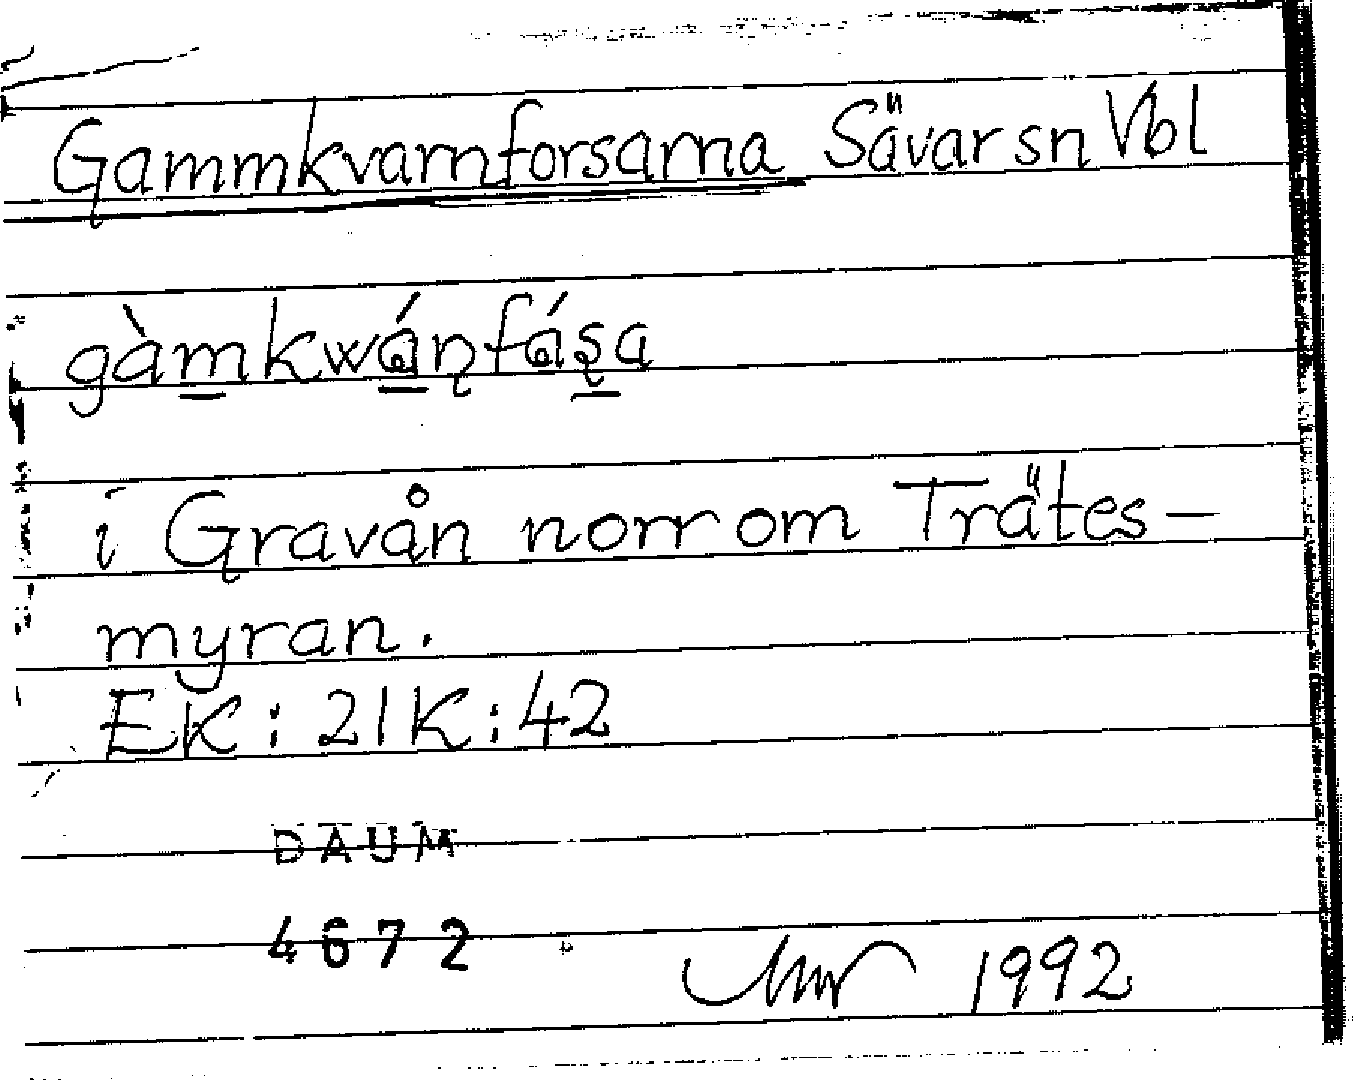 Gammkvarnforsarna Sävar sn Vbl
gàm̲kwɑ̲́ɳfɑ́ʂ̲a
i Gravån norr om Trätes-
myran.
EK: 21K: 42
DAUM
4672
1992